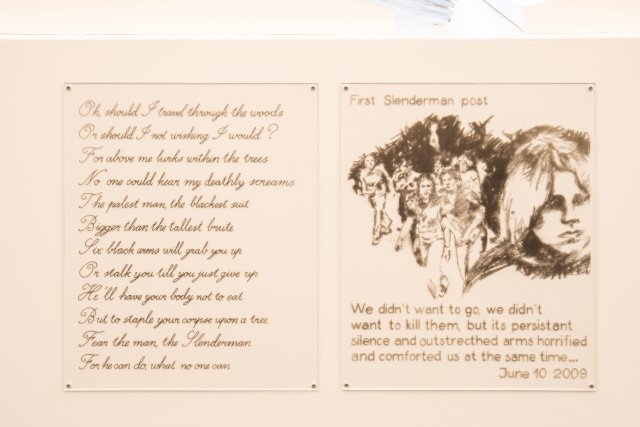 Oh, should I travel through the woods
Or should I not wishing I would ?
For above me lurks within the trees
No one could hear my deathly screams
The palest man, the blackest suit
Bigger than the tallest brute
Six black arms will grab you up
Or stalk you till you just give up
He'll have your body not to eat
But to staple your corpse upon a tree
Fear the man, the Slenderman
For he can do, what no one can
First Slenderman post
We didn't want to go, we didn't
want to kill them, but its persistant
silence and outstrecthed arms horrified
and comforted us at the same time...
June 10 2009